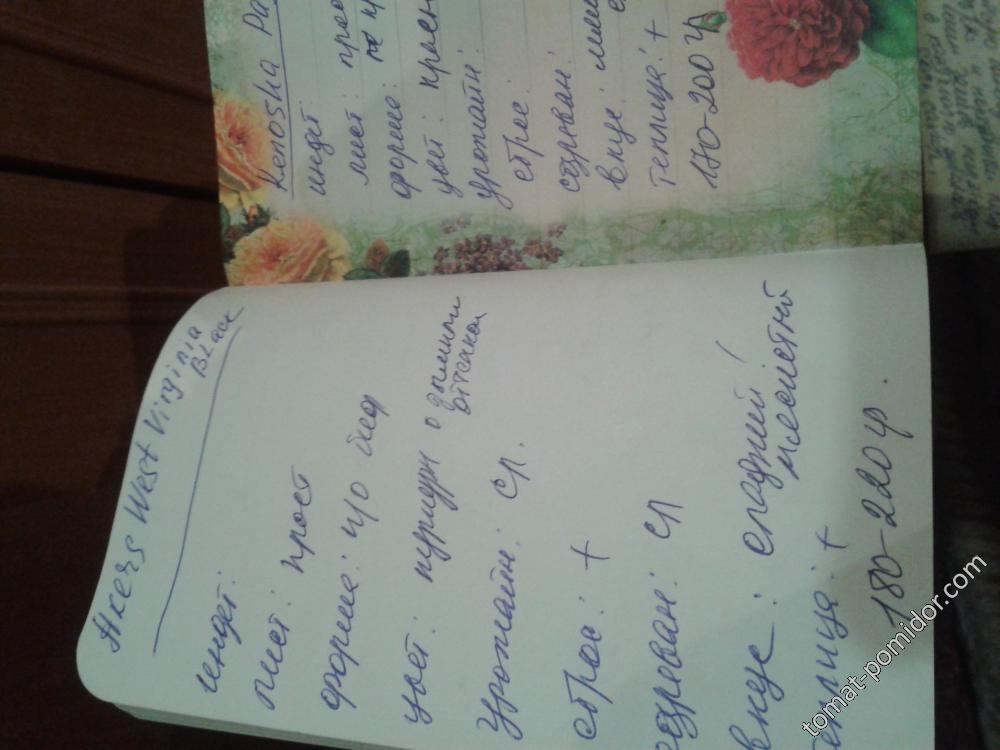 Akers West Virginia
Black
индет.
лист: прост
форма: п/о
цвет: пурпурн с дымчатым
оттенком
Урожайн: ср.
сброс: +
созреван: ср
вкус: сладкий /
мясистый
теплица: +
180-220 гр.
Kenosha Pa
индет
лист: прос
форма:
цвет: красн
урожайн:
сброс:
созреван:
вкус:
теплица: +
170-200 гр
tomat-pomidor.com